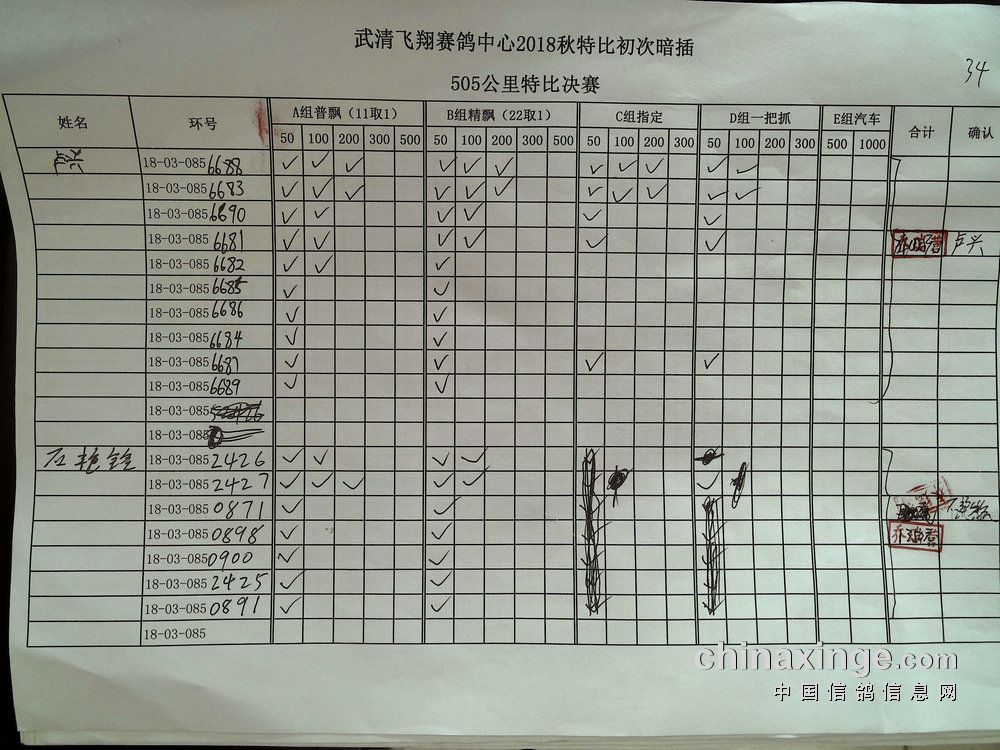 武清飞翔赛鸽中心2018秋特比初次暗插
34
505公里特比决赛
姓名 环号 A组普飘（11取1） B组精飘（22取1） C组指定 D组一把抓 E组汽车 合计 确认
50 100 200 300 500 50 100 200 300 500 50 100 200 300 50 100 200 300 500 1000
18-03-085 6688 ✓ ✓ ✓ ✓ ✓ ✓ ✓ ✓ ✓ ✓ ✓
18-03-085 6683 ✓ ✓ ✓ ✓ ✓ ✓ ✓ ✓ ✓ ✓ ✓
18-03-085 6690 ✓ ✓ ✓ ✓ ✓ ✓
18-03-085 6681 ✓ ✓ ✓ ✓ ✓ ✓ 卢兴
18-03-085 6682 ✓ ✓ ✓
18-03-085 6685 ✓ ✓
18-03-085 6686 ✓ ✓
18-03-085 6684 ✓ ✓
18-03-085 6687 ✓ ✓ ✓ ✓
18-03-085 6689 ✓ ✓
18-03-085
18-03-085
石艳全 18-03-085 2426 ✓ ✓ ✓ ✓
18-03-085 2427 ✓ ✓ ✓ ✓ ✓ ✓
18-03-085 0871 ✓ ✓
18-03-085 0898 ✓ ✓
18-03-085 0900 ✓ ✓
18-03-085 2425 ✓ ✓
18-03-085 0891 ✓ ✓
18-03-085
chinaxinge.com
中国信鸽信息网